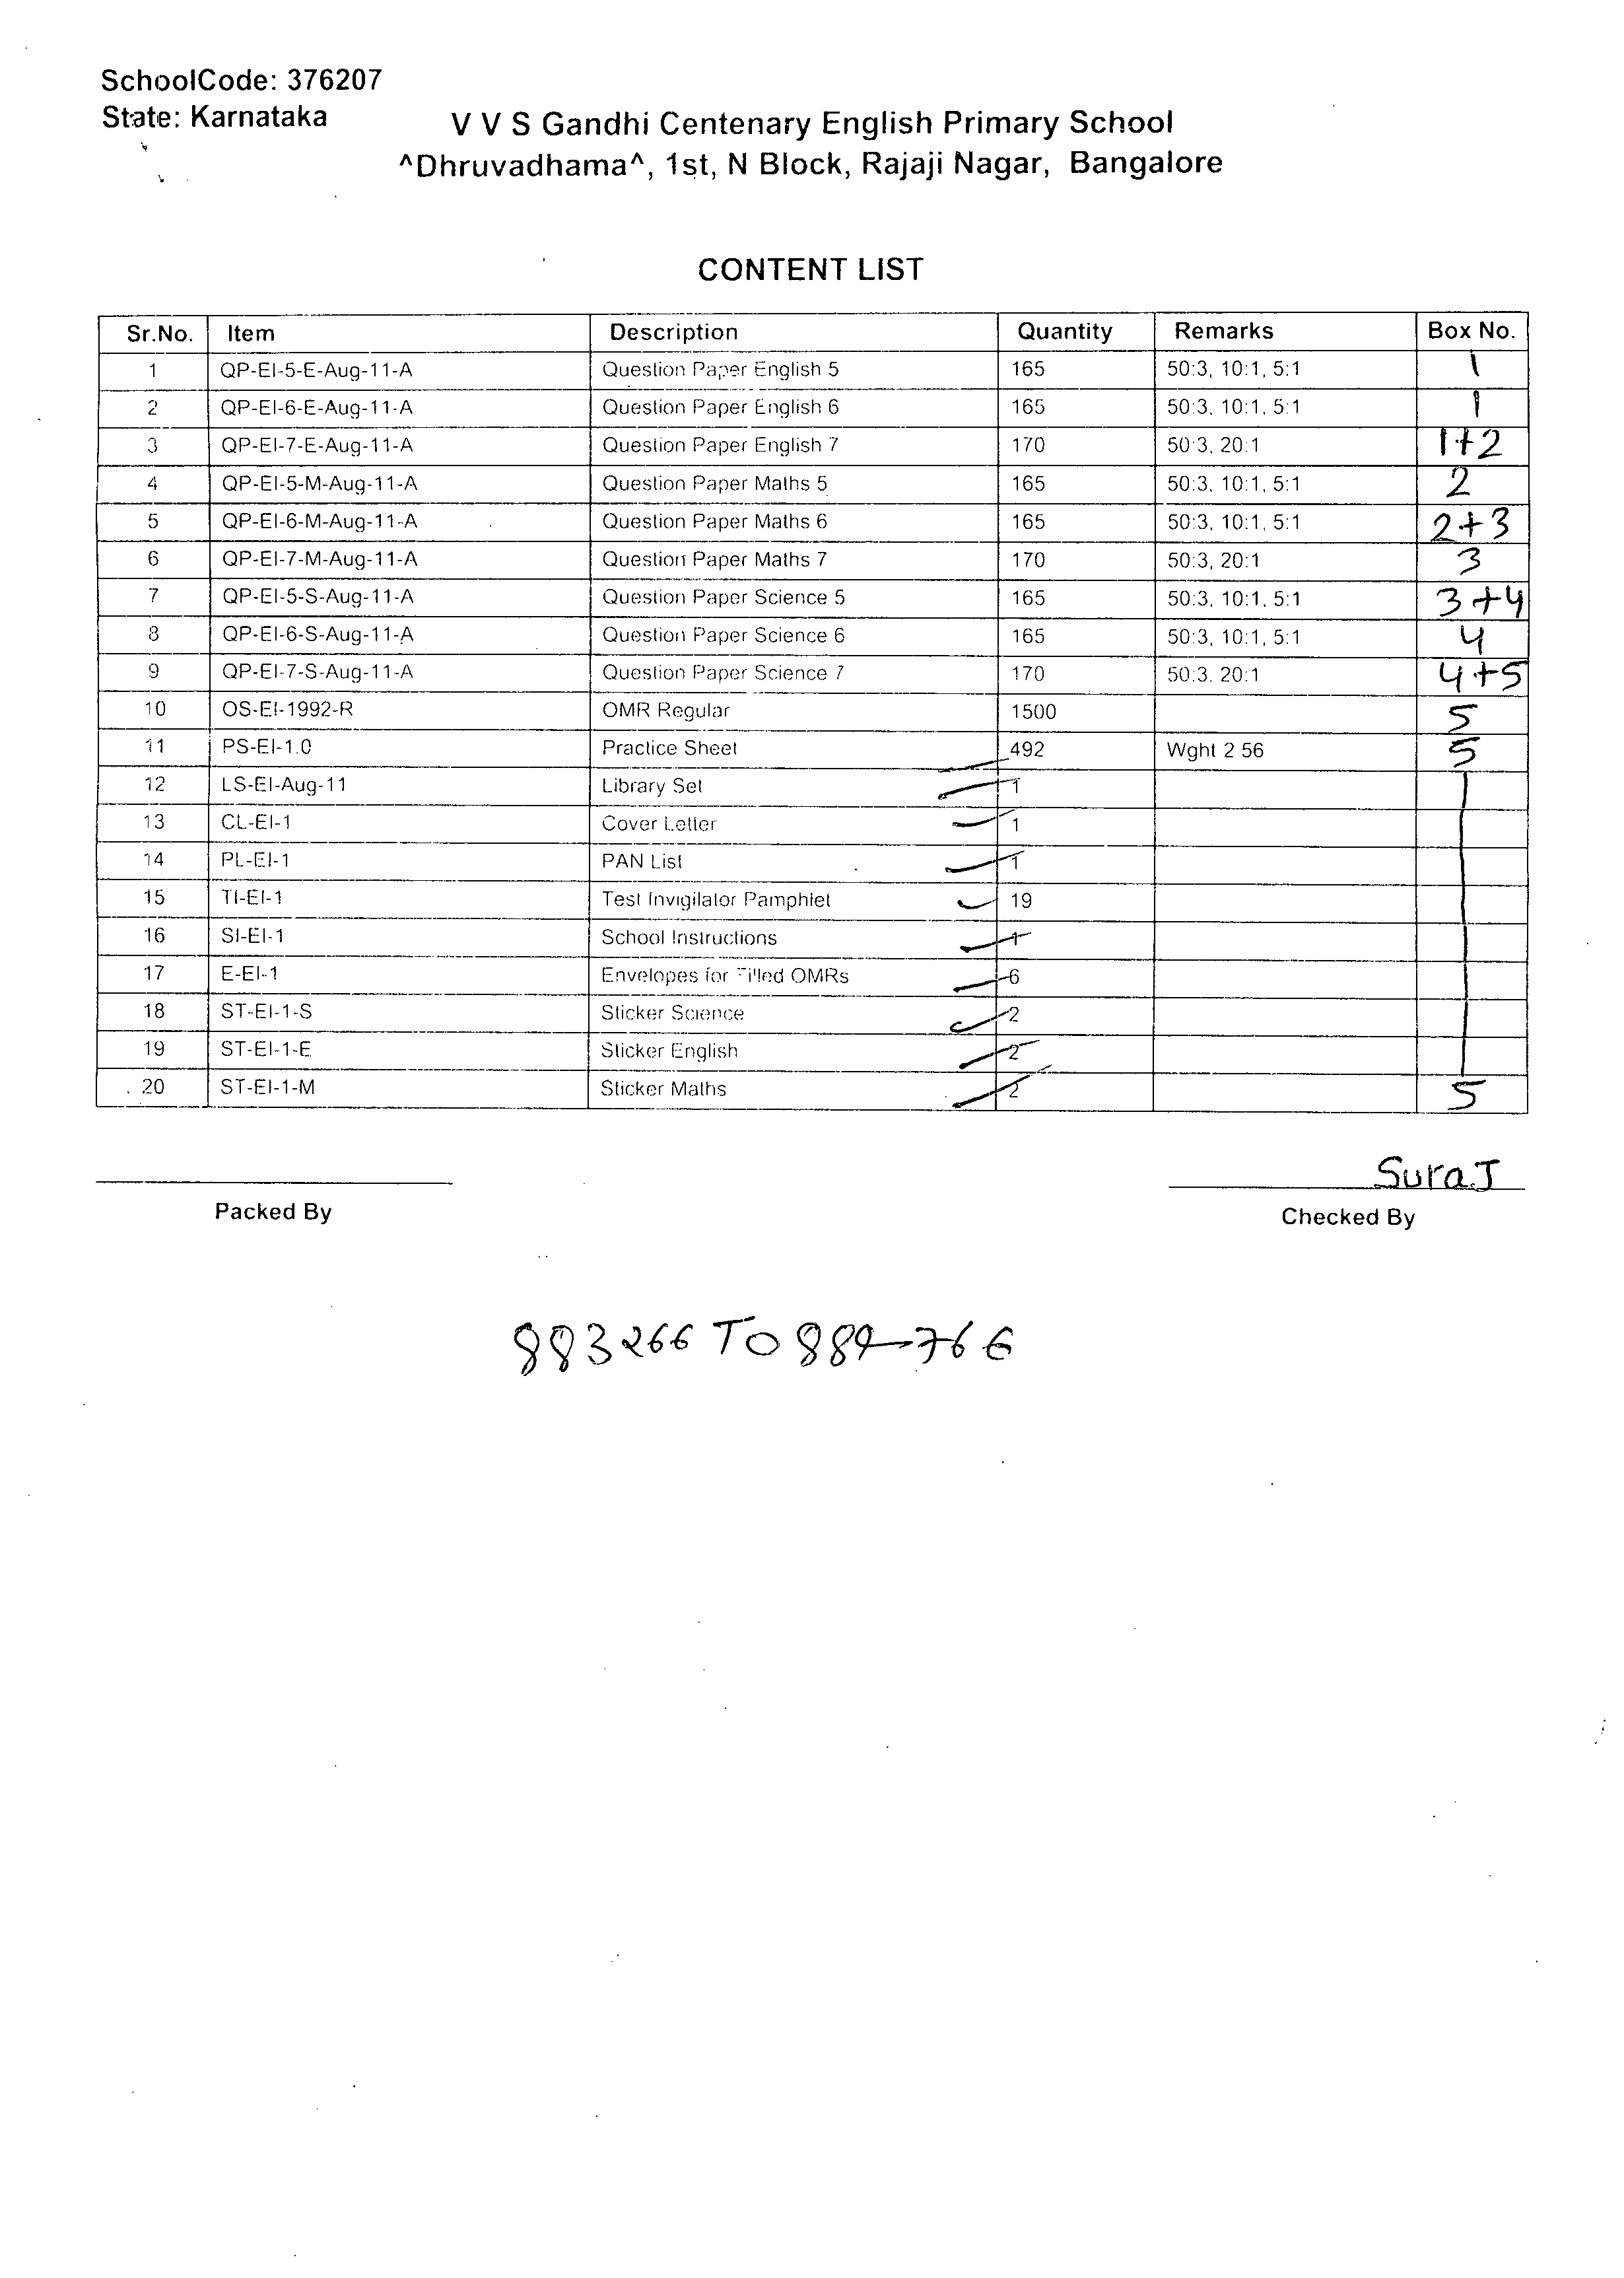 SchoolCode: 376207
State: Karnataka
V V S Gandhi Centenary English Primary School
^Dhruvadhama^, 1st, N Block, Rajaji Nagar, Bangalore
CONTENT LIST
Sr.No. Item Description Quantity Remarks Box No.
1 QP-EI-5-E-Aug-11-A Question Paper English 5 165 50:3, 10:1, 5:1 1
2 QP-EI-6-E-Aug-11-A Question Paper English 6 165 50:3, 10:1, 5:1 1
3 QP-EI-7-E-Aug-11-A Question Paper English 7 170 50:3, 20:1 1+2
4 QP-EI-5-M-Aug-11-A Question Paper Maths 5 165 50:3, 10:1, 5:1 2
5 QP-EI-6-M-Aug-11-A Question Paper Maths 6 165 50:3, 10:1, 5:1 2+3
6 QP-EI-7-M-Aug-11-A Question Paper Maths 7 170 50:3, 20:1 3
7 QP-EI-5-S-Aug-11-A Question Paper Science 5 165 50:3, 10:1, 5:1 3+4
8 QP-EI-6-S-Aug-11-A Question Paper Science 6 165 50:3, 10:1, 5:1 4
9 QP-EI-7-S-Aug-11-A Question Paper Science 7 170 50:3, 20:1 4+5
10 OS-EI-1992-R OMR Regular 1500 5
11 PS-EI-1.0 Practice Sheet 492 Wght 2 56 5
12 LS-EI-Aug-11 Library Set 1
13 CL-EI-1 Cover Letter 1
14 PL-EI-1 PAN List 1
15 TI-EI-1 Test Invigilator Pamphlet 19
16 SI-EI-1 School Instructions 1
17 E-EI-1 Envelopes for Filled OMRs 6
18 ST-EI-1-S Sticker Science 2
19 ST-EI-1-E Sticker English 2
20 ST-EI-1-M Sticker Maths 2 5
SuraJ
Packed By Checked By
883266 TO 884766